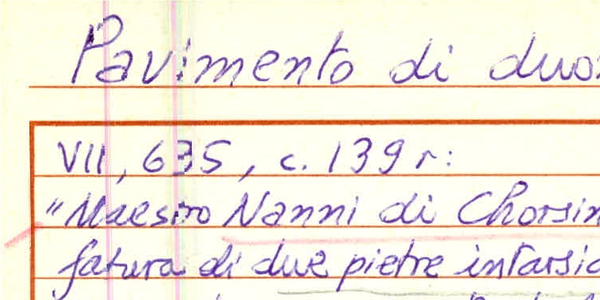 Pavimento di duo
VII, 635, c. 139 r:
"Maestro Nanni di Chorsin
fatura di due pietre intarsia